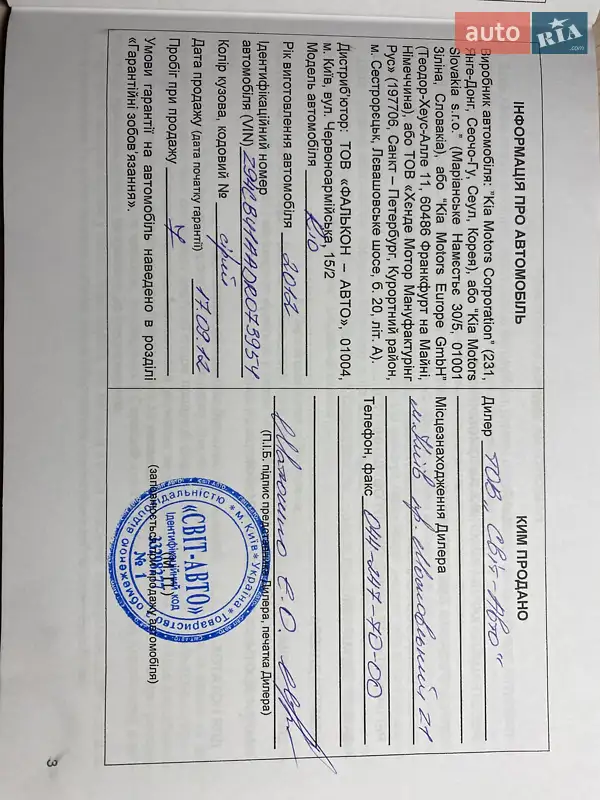 auto RIA.com
ІНФОРМАЦІЯ ПРО АВТОМОБІЛЬ
Виробник автомобіля: "Kia Motors Corporation" (231,
Янге-Донг, Сеочо-Гу, Сеул, Корея), або "Kia Motors
Slovakia s.r.o." (Маріанське Наместье 30/5, 01001
Зіліна, Словакія), або "Kia Motors Europe GmbH"
(Теодор-Хеус-Алле 11, 60486 Франкфурт на Майні,
Німеччина), або ТОВ «Хенде Мотор Мануфактурінг
Рус» (197706, Санкт – Петербург, Курортний район,
м. Сестрорецьк, Лєвашовське шосе, б. 20, літ. А).
Дистриб'ютор: ТОВ «ФАЛЬКОН – АВТО», 01004,
м. Київ, вул. Червоноармійська, 15/2
Модель автомобіля Rio
Рік виготовлення автомобіля 2012
Ідентифікаційний номер
автомобіля (VIN)
Колір кузова, кодовий № сірий
Дата продажу (дата початку гарантії) 17.09.12
Пробіг при продажу 7
Умови гарантії на автомобіль наведено в розділі
«Гарантійні зобов'язання».
КИМ ПРОДАНО
Дилер ТОВ „Світ-Авто"
Місцезнаходження Дилера
м. Київ пр. Московський 21
Телефон, факс 044-247-70-00
(П.І.Б. підпис представника Дилера, печатка Дилера)
(М.П.)
(заповнюється при продажу автомобіля)
м. Київ * Україна * Товариство з обмеженою відповідальністю
«СВІТ-АВТО»
Ідентифікаційний код
№ 1
3